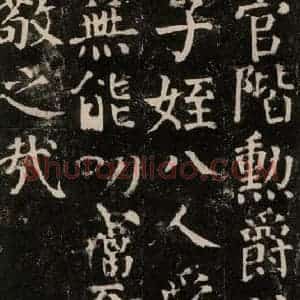 官階勳爵
子姪八人
無能當
敬之哉
Shufaziliao.Com